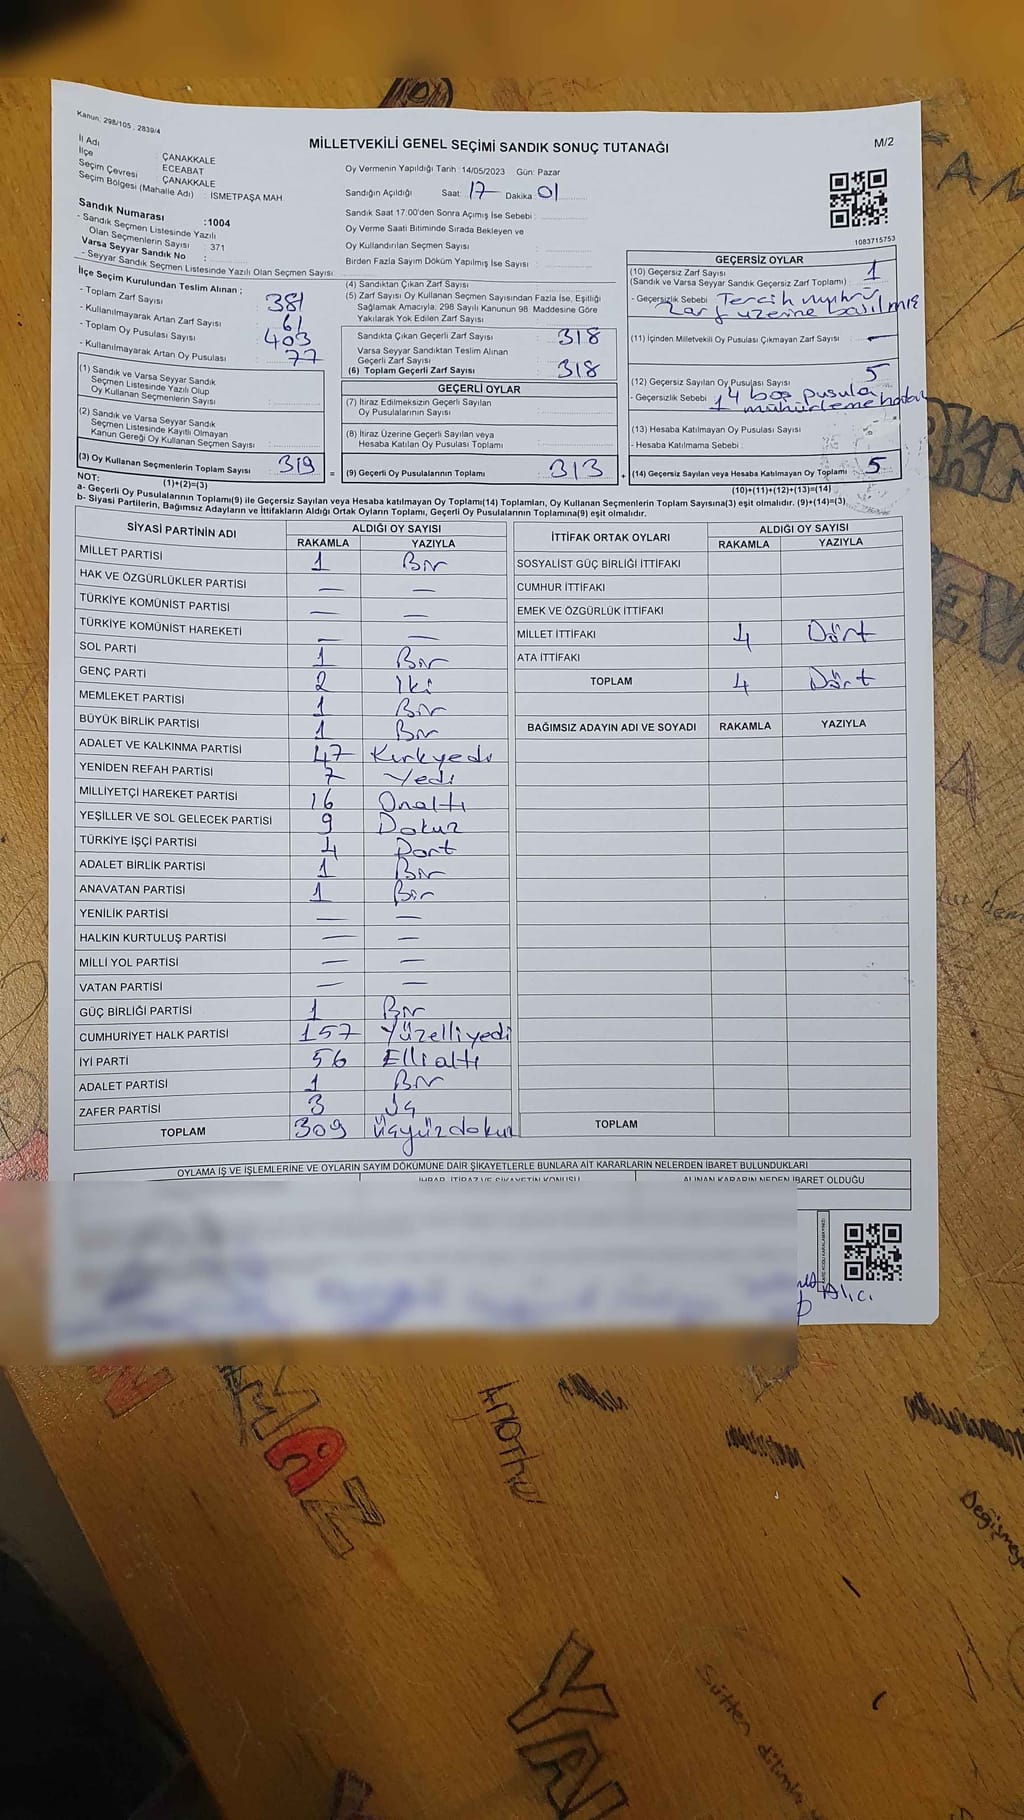 Kanun; 298/105 , 2839/4
MİLLETVEKİLİ GENEL SEÇİMİ SANDIK SONUÇ TUTANAĞI
M/2
İl Adı : ÇANAKKALE
İlçe : ECEABAT
Seçim Çevresi : ÇANAKKALE
Seçim Bölgesi (Mahalle Adı) : İSMETPAŞA MAH
Sandık Numarası :1004
- Sandık Seçmen Listesinde Yazılı
Olan Seçmenlerin Sayısı : 371
Varsa Seyyar Sandık No :
- Seyyar Sandık Seçmen Listesinde Yazılı Olan Seçmen Sayısı
Oy Vermenin Yapıldığı Tarih : 14/05/2023 Gün: Pazar
Sandığın Açıldığı Saat: 17 Dakika 01
Sandık Saat 17:00'den Sonra Açımış İse Sebebi :
Oy Verme Saati Bitiminde Sırada Bekleyen ve
Oy Kullandırılan Seçmen Sayısı :
Birden Fazla Sayım Döküm Yapılmış İse Sayısı :
1083715753
İlçe Seçim Kurulundan Teslim Alınan ;
- Toplam Zarf Sayısı : 381
- Kullanılmayarak Artan Zarf Sayısı : 61
- Toplam Oy Pusulası Sayısı : 403
- Kullanılmayarak Artan Oy Pusulası : 77
(1) Sandık ve Varsa Seyyar Sandık
Seçmen Listesinde Yazılı Olup
Oy Kullanan Seçmenlerin Sayısı :
(2) Sandık ve Varsa Seyyar Sandık
Seçmen Listesinde Kayıtlı Olmayan
Kanun Gereği Oy Kullanan Seçmen Sayısı :
(3) Oy Kullanan Seçmenlerin Toplam Sayısı 319
(1)+(2)=(3)
(4) Sandıktan Çıkan Zarf Sayısı :
(5) Zarf Sayısı Oy Kullanan Seçmen Sayısından Fazla İse, Eşitliği
Sağlamak Amacıyla, 298 Sayılı Kanunun 98. Maddesine Göre
Yakılarak Yok Edilen Zarf Sayısı :
Sandıkta Çıkan Geçerli Zarf Sayısı : 318
Varsa Seyyar Sandıktan Teslim Alınan
Geçerli Zarf Sayısı :
(6) Toplam Geçerli Zarf Sayısı : 318
GEÇERLİ OYLAR
(7) İtiraz Edilmeksizin Geçerli Sayılan
Oy Pusulalarının Sayısı :
(8) İtiraz Üzerine Geçerli Sayılan veya
Hesaba Katılan Oy Pusulası Toplamı :
= (9) Geçerli Oy Pusulalarının Toplamı : 313
GEÇERSİZ OYLAR
(10) Geçersiz Zarf Sayısı : 1
(Sandık ve Varsa Seyyar Sandık Geçersiz Zarf Toplamı)
- Geçersizlik Sebebi : Tercih mührü
zarf üzerine basılmış
(11) İçinden Milletvekili Oy Pusulası Çıkmayan Zarf Sayısı : —
(12) Geçersiz Sayılan Oy Pusulası Sayısı : 5
- Geçersizlik Sebebi : 4 boş pusula
1 mühürleme hatası
(13) Hesaba Katılmayan Oy Pusulası Sayısı :
- Hesaba Katılmama Sebebi :
+ (14) Geçersiz Sayılan veya Hesaba Katılmayan Oy Toplamı 5
(10)+(11)+(12)+(13)=(14)
NOT:
a- Geçerli Oy Pusulalarının Toplamı(9) ile Geçersiz Sayılan veya Hesaba katılmayan Oy Toplamı(14) Toplamları, Oy Kullanan Seçmenlerin Toplam Sayısına(3) eşit olmalıdır. (9)+(14)=(3)
b- Siyasi Partilerin, Bağımsız Adayların ve İttifakların Aldığı Ortak Oyların Toplamı, Geçerli Oy Pusulalarının Toplamına(9) eşit olmalıdır.
SİYASİ PARTİNİN ADI ALDIĞI OY SAYISI
RAKAMLA YAZIYLA
MİLLET PARTİSİ 1 Bir
HAK VE ÖZGÜRLÜKLER PARTİSİ — —
TÜRKİYE KOMÜNİST PARTİSİ — —
TÜRKİYE KOMÜNİST HAREKETİ — —
SOL PARTİ 1 Bir
GENÇ PARTİ 2 İki
MEMLEKET PARTİSİ 1 Bir
BÜYÜK BİRLİK PARTİSİ 1 Bir
ADALET VE KALKINMA PARTİSİ 47 Kırkyedi
YENİDEN REFAH PARTİSİ 7 Yedi
MİLLİYETÇİ HAREKET PARTİSİ 16 Onaltı
YEŞİLLER VE SOL GELECEK PARTİSİ 9 Dokuz
TÜRKİYE İŞÇİ PARTİSİ 4 Dört
ADALET BİRLİK PARTİSİ 1 Bir
ANAVATAN PARTİSİ 1 Bir
YENİLİK PARTİSİ — —
HALKIN KURTULUŞ PARTİSİ — —
MİLLİ YOL PARTİSİ — —
VATAN PARTİSİ — —
GÜÇ BİRLİĞİ PARTİSİ 1 Bir
CUMHURİYET HALK PARTİSİ 157 Yüzelliyedi
İYİ PARTİ 56 Ellialtı
ADALET PARTİSİ 1 Bir
ZAFER PARTİSİ 3 Üç
TOPLAM 309 Üçyüzdokuz
İTTİFAK ORTAK OYLARI ALDIĞI OY SAYISI
RAKAMLA YAZIYLA
SOSYALİST GÜÇ BİRLİĞİ İTTİFAKI
CUMHUR İTTİFAKI
EMEK VE ÖZGÜRLÜK İTTİFAKI
MİLLET İTTİFAKI 4 Dört
ATA İTTİFAKI
TOPLAM 4 Dört
BAĞIMSIZ ADAYIN ADI VE SOYADI RAKAMLA YAZIYLA
TOPLAM
OYLAMA İŞ VE İŞLEMLERİNE VE OYLARIN SAYIM DÖKÜMÜNE DAİR ŞİKAYETLERLE BUNLARA AİT KARARLARIN NELERDEN İBARET BULUNDUKLARI
İHBAR, İTİRAZ VE ŞİKAYETİN KONUSU
ALINAN KARARIN NEDEN İBARET OLDUĞU
MAZ
YA
Sütten